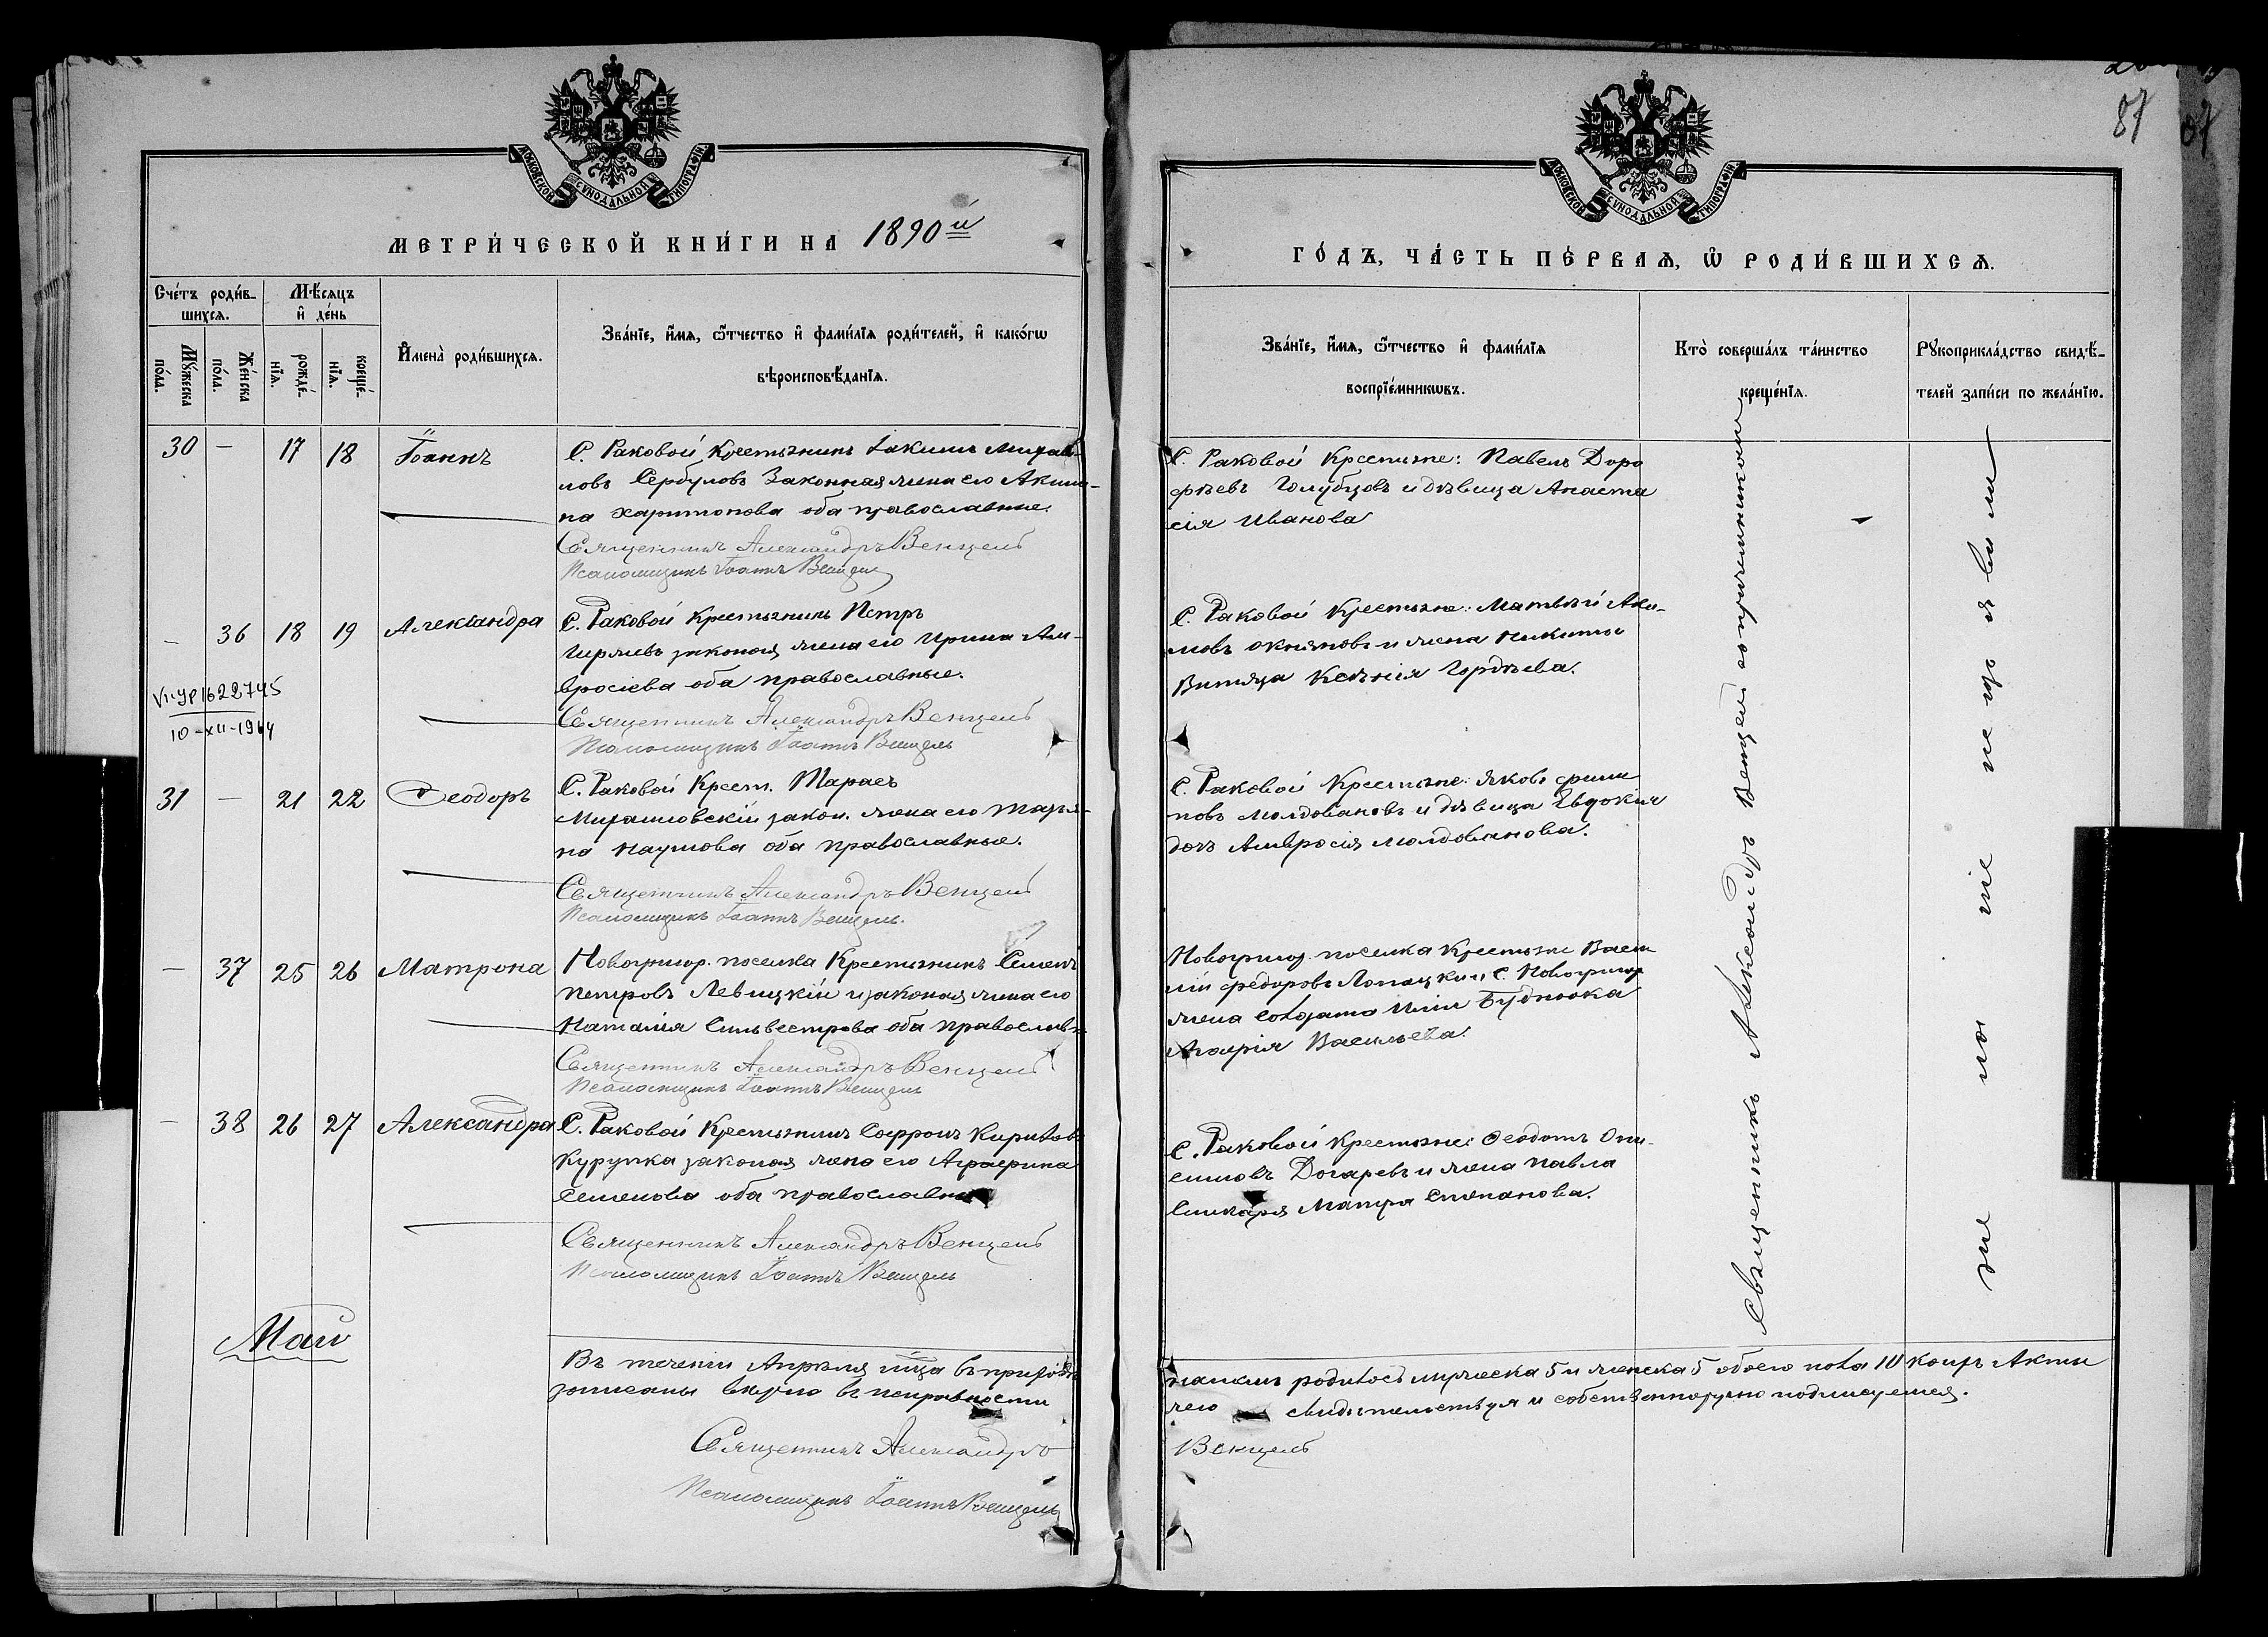 87
МОСКОВСКОЙ СѴНОДАЛЬНОЙ ТИПОГРАФІИ
МЕТРИ́ЧЕСКОЙ КНИ́ГИ НА 1890й
Сче́тъ роди́в-
шихсѧ.
Мꙋ́жеска
по́ла.
Же́нска
по́ла.
Мѣ́сѧцъ
и҆ де́нь
рожде́-
нїѧ.
креще́-
нїѧ.
И҆мена̀ роди́вшихсѧ.
Зва́нїе, и҆́мѧ, ѻ҆́тчество и҆ фами́лїѧ роди́телей, и҆ како́гѡ
вѣроисповѣ́данїѧ.
30 — 17 18 Іоаннъ
С. Раковой Крестьянинъ Іакимъ Михай-
ловъ Сербуловъ Законная жена его Акили-
на Харитонова оба православные.
Священникъ Александръ Венцель
Псаломщикъ Іоаннъ Венцель
— 36 18 19 Александра
С. Раковой Крестьянинъ Петръ
законая жена его Ирина Ам-
вросіева оба православные.
Священникъ Александръ Венцель
Псаломщикъ Іоаннъ Венцель
VI-УР 1622745
10-XII-1964
31 — 21 22 Ѳеодоръ
С. Раковой Крест. Тарасъ
закон. жена его Марья-
на Наумова оба православные.
Священникъ Александръ Венцель
Псаломщикъ Іоаннъ Венцель.
— 37 25 26 Матрона
Новогригор. поселка Крестьянинъ Семенъ
Петровъ Левицкій и законая жена его
Наталія Сильвестрова оба православн.
Священникъ Александръ Венцель
Псаломщикъ Іоаннъ Венцель
— 38 26 27 Александра
С. Раковой Крестьянинъ Софронъ Кириловъ
Курупка законая жена его Аграфина
Семенова оба православные
Священникъ Александръ Венцель
Псаломщикъ Іоаннъ Венцель
Май
Въ теченіи Апрѣля мѣсца въ приходѣ
записаны вѣрно въ исправности
Священникъ Александръ
Псаломщикъ Іоаннъ Венцель
МОСКОВСКОЙ СѴНОДАЛЬНОЙ ТИПОГРАФІИ
ГО́ДЪ, ЧА́СТЬ ПЕ́РВАѦ, Ѡ҆ РОДИ́ВШИХСѦ.
Зва́нїе, и҆́мѧ, ѻ҆́тчество и҆ фами́лїѧ
воспрїе́мникѡвъ.
Кто̀ соверша́лъ та́инство
креще́нїѧ.
Рꙋкоприкла́дство свидѣ́-
телей за́писи по жела́нїю.
С. Раковой Крестьяне: Павелъ Доро
фѣевъ Голубцовъ и дѣвица Анаста
сія Иванова
С. Раковой Крестьяне: Матвѣй Аки-
мовъ и жена Никиты
Витяза Ксенія Гордѣева.
С. Раковой Крестьяне: Яковъ Фили
повъ Молдовановъ и дѣвица Евдокія
дочь Амвросія Молдованова.
Новогригор. поселка Крестьяне Васи
лій Федоровъ Лопацкій, С. Новогригор
жена солдата Иліи Буднюка
Агафія Васильева.
С. Раковой Крестьяне: Ѳеодотъ Они-
симовъ Догаревъ и жена Павла
Степанова.
Священникъ Александръ Венцель со причетникомъ
не по не не ця я ви ли
нашемъ родилось мужеска 5 и женска 5 обоего пола 10
чего свидѣтельствуя и собственноручно подписуемся.
Венцель